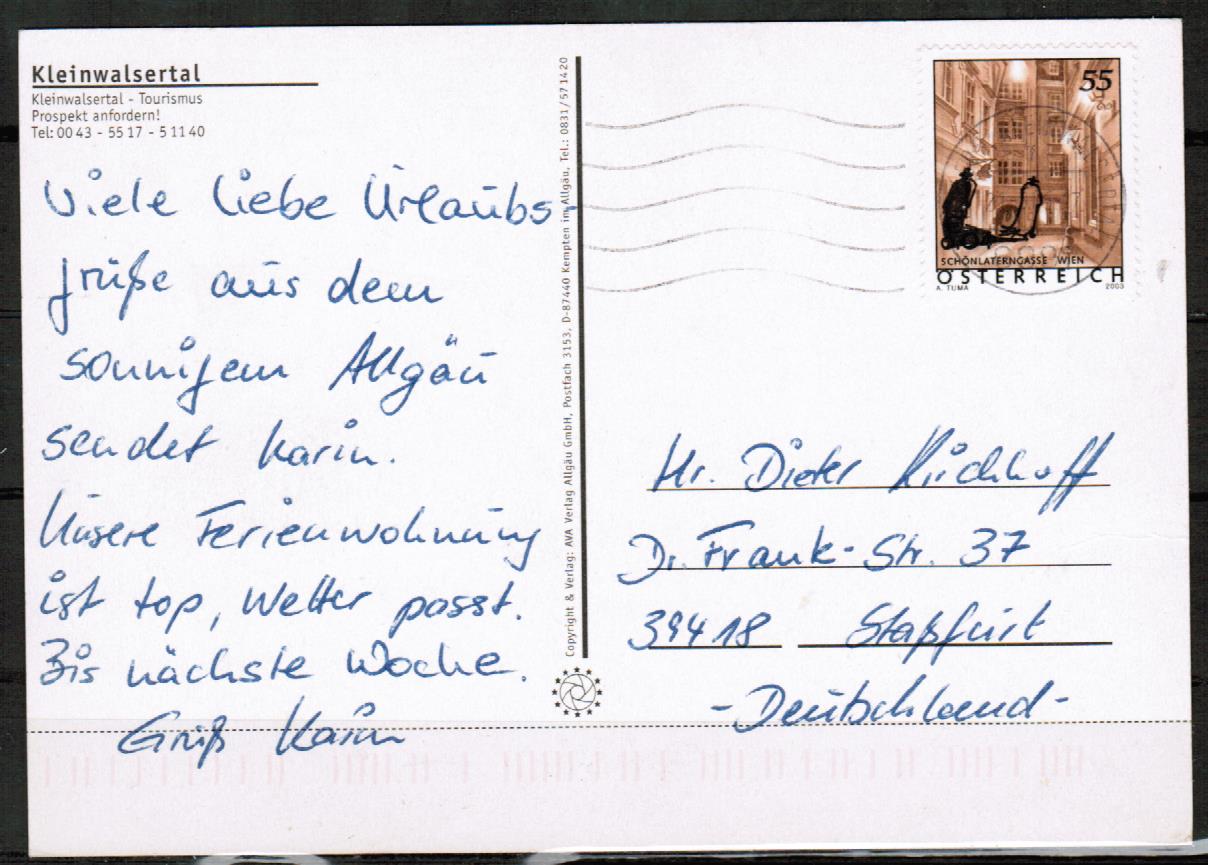 Kleinwalsertal
Kleinwalsertal - Tourismus
Prospekt anfordern!
Tel: 00 43 - 55 17 - 5 11 40
Viele liebe Urlaubs-
grüße aus dem
sonnigem Allgäu
sendet Karin.
Unsere Ferienwohnung
ist top, Wetter passt.
Bis nächste Woche.
Gruß Karin
Copyright & Verlag: AVA Verlag Allgäu GmbH, Postfach 3153, D-87440 Kempten im Allgäu, Tel.: 0831/57 14 20
55
SCHÖNLATERNGASSE WIEN
ÖSTERREICH
A. TUMA 2003
Hr. Dieter Kirchhoff
Dr. Frank-Str. 37
39418 Staßfurt
-Deutschland-